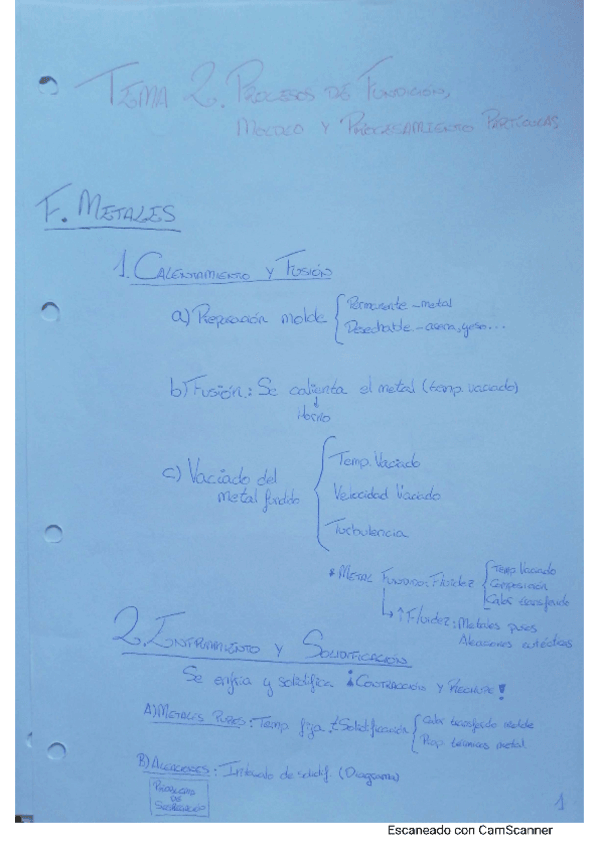 TEMA 2. PROCESOS DE FUNDICIÓN,
MOLDEO Y PROCESAMIENTO PARTÍCULAS
F. METALES
1. CALENTAMIENTO Y FUSIÓN
a) Preparación molde
Permanente - metal
Desechable - arena, yeso...
b) Fusión: Se calienta el metal (temp. vaciado)
↓
Horno
c) Vaciado del
metal fundido
Temp. Vaciado
Velocidad Vaciado
Turbulencia
* METAL FUNDIDO: Fluidez
Temp Vaciado
Composición
Calor transferido
↳ ↑ Fluidez: Metales puros
Aleaciones eutécticas
2. ENFRIAMIENTO Y SOLIDIFICACIÓN
Se enfria y solidifica ¡CONTRACCIÓN Y RECHUPE!
A) METALES PUROS: Temp. fija. t Solidificación
Calor transferido molde
Prop. térmicas metal
B) ALEACIONES: Intervalo de solidif. (Diagrama)
PROBLEMAS
DE
SEGREGACIÓN
1
Escaneado con CamScanner